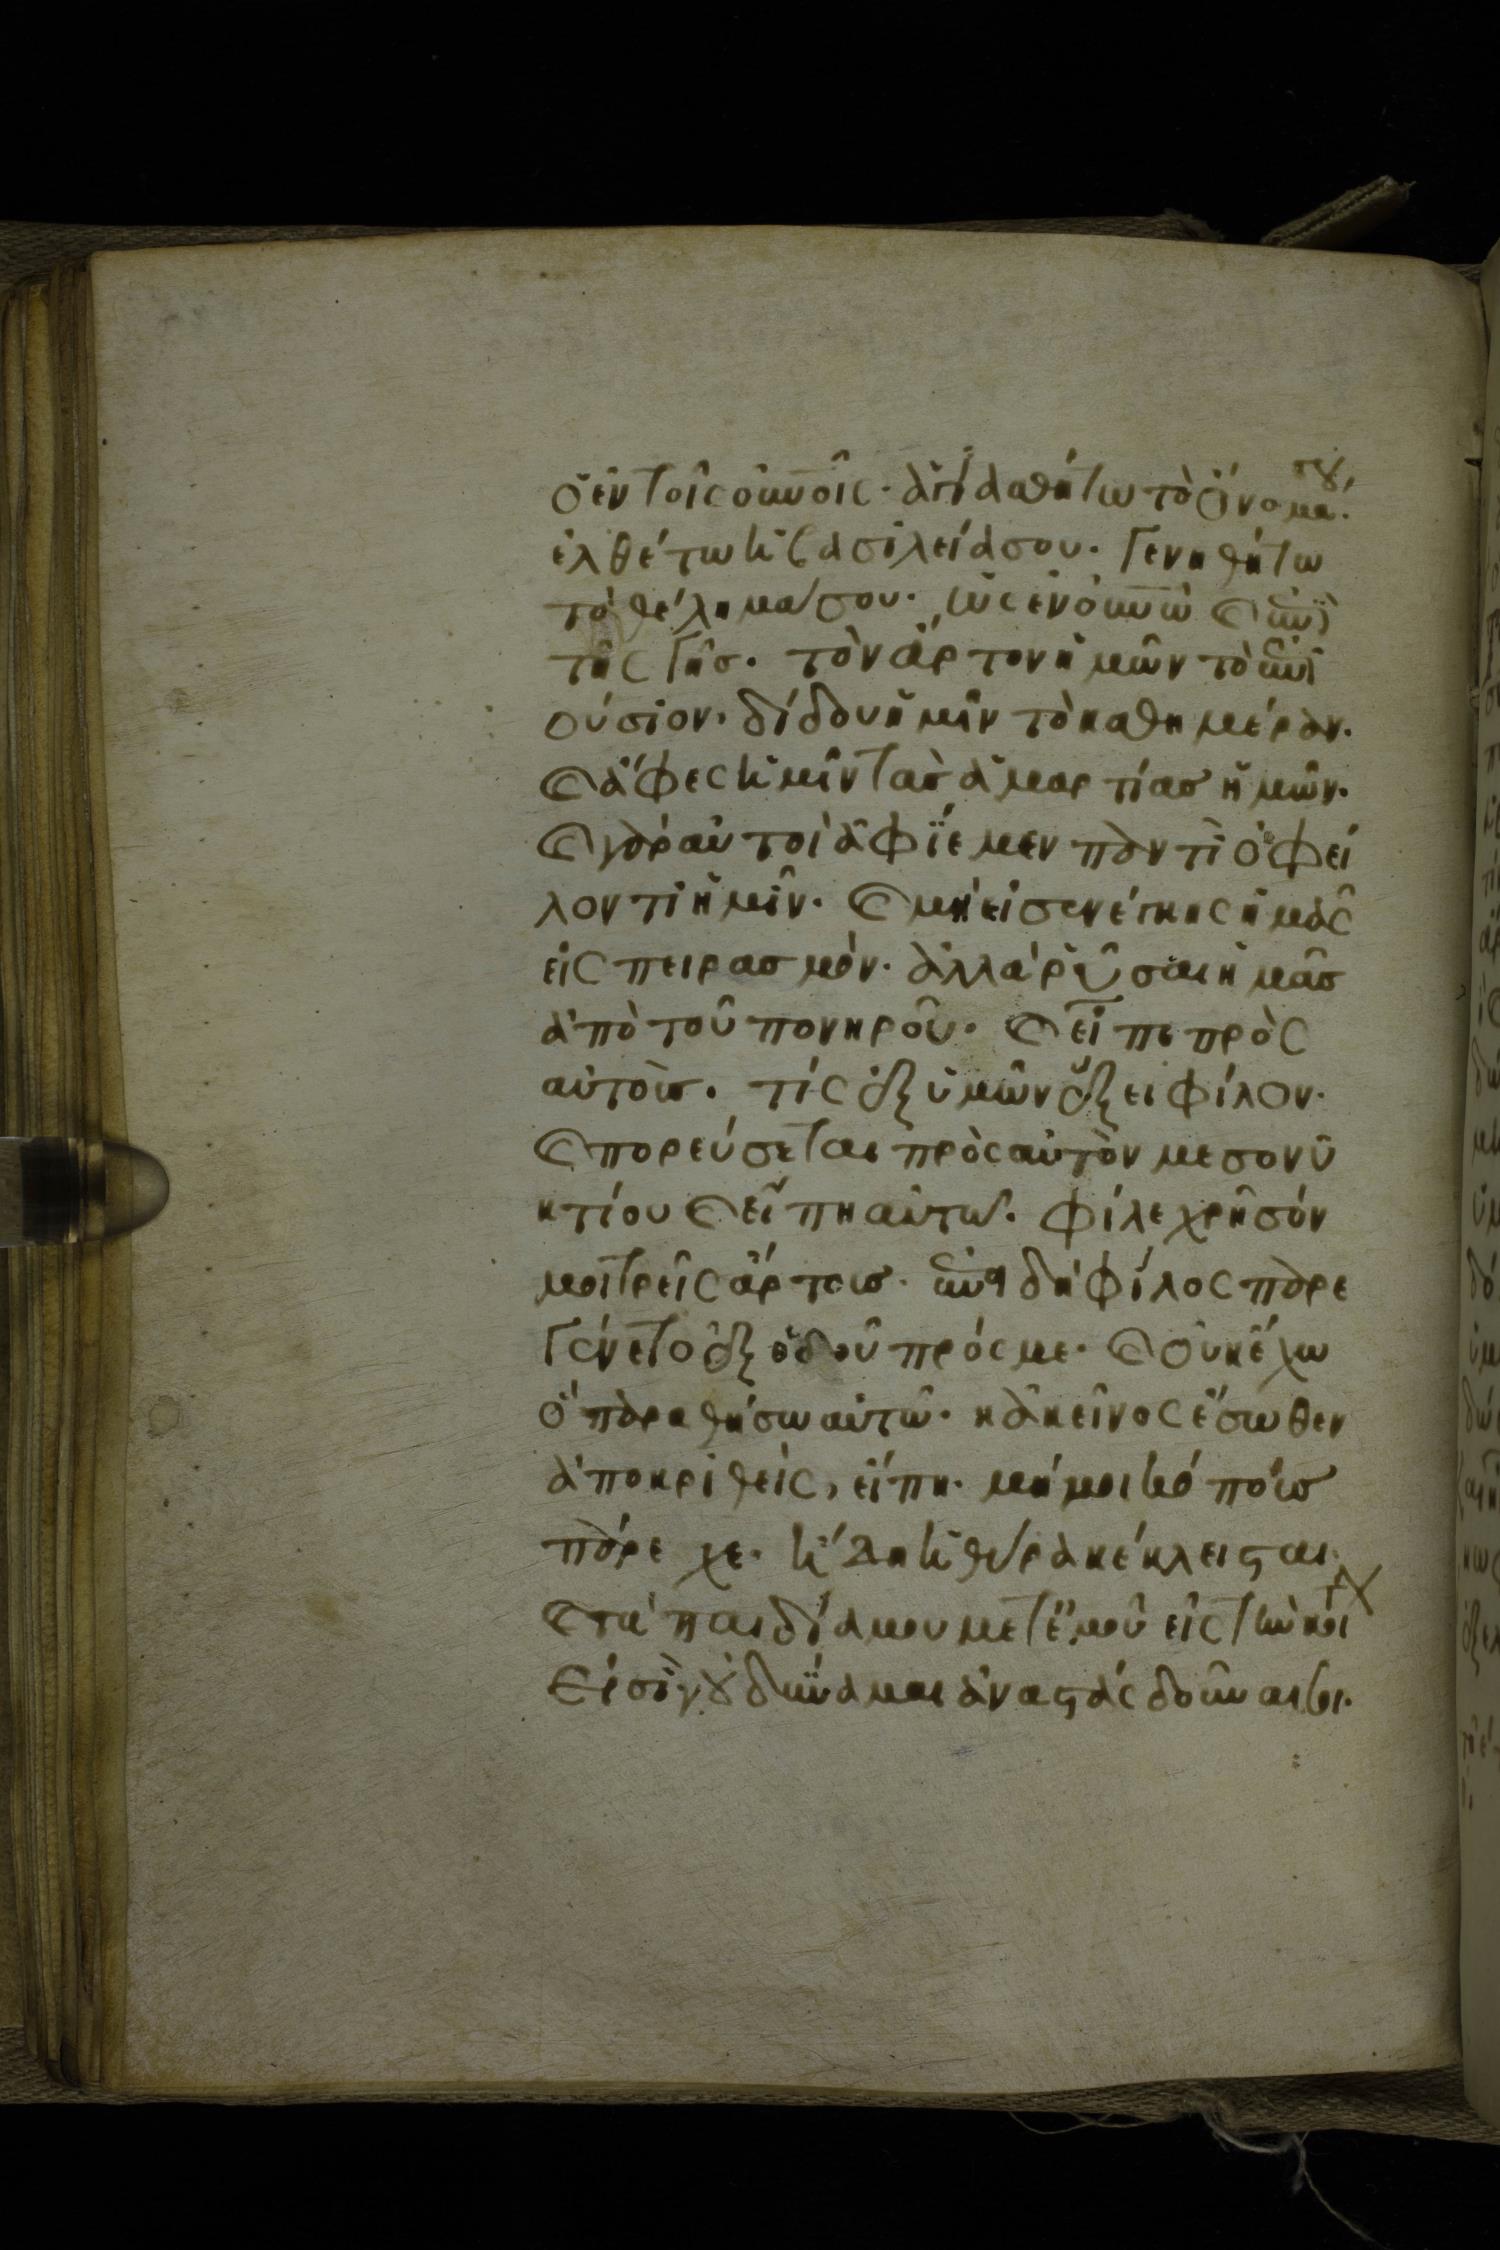 ὁ ἐν τοῖς οὐνοῖς· ἁγιασθήτω τὸ ὄνομά σου·
ἐλθέτω ἡ βασιλεία σου· γενηθήτω
τὸ θέλημα σου· ὡς ἐν οὐνῶ καὶ ἐπὶ
τῆς γῆς· τὸν ἄρτον ἡμῶν τὸν ἐπι
ούσιον· δίδου ἡμῖν τὸ καθημέραν·
καὶ ἄφες ἡμῖν τὰς ἁμαρτίας ἡμῶν·
καὶ γὰρ αὐτοὶ ἀφΐεμεν παντὶ ὀφεί
λοντι ἡμῖν· καὶ μὴ εἰσενέγκης ἡμᾶς
εἰς πειρασμόν· ἀλλὰ ῥῦσαι ἡμᾶς
ἀπὸ τοῦ πονηροῦ· καὶ εἶπε πρὸς
αὐτούς· τίς ἐξ ὑμῶν ἕξει φίλον·
καὶ πορεύσεται πρὸς αὐτὸν μεσονυ
κτίου καὶ εἴπη αὐτῶ· φίλε χρῆσόν
μοι τρεῖς ἄρτους· ἐπειδὴ φίλος παρε
γένετο ἐξ ὁδοῦ πρός με· καὶ οὐκ ἔχω
ὃ παραθήσω αὐτῶ· κἀκεῖνος ἔσωθεν
ἀποκριθεὶς, εἴπη· μή μοι κόπους
πάρεχε· ἤδη ἡ θύρα κέκλεισται
καὶ τὰ παιδία μου μετ ἐμοῦ εἰς τὴν κοί
την
εἰσίν· οὐ δύναμαι ἀναστὰς δοῦναί σοι·